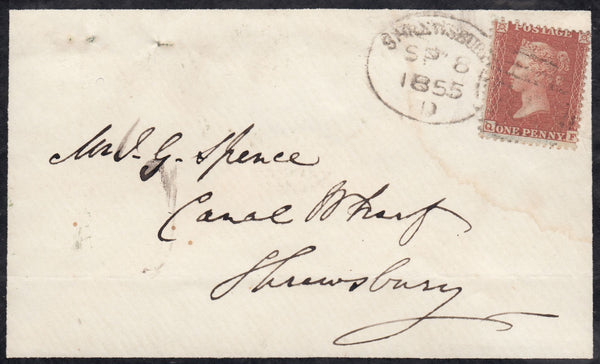 SHREWSBURY
SP 8
1855
D
POSTAGE
ONE PENNY
Mr J. G. Spence
Canal Wharf
Shrewsbury